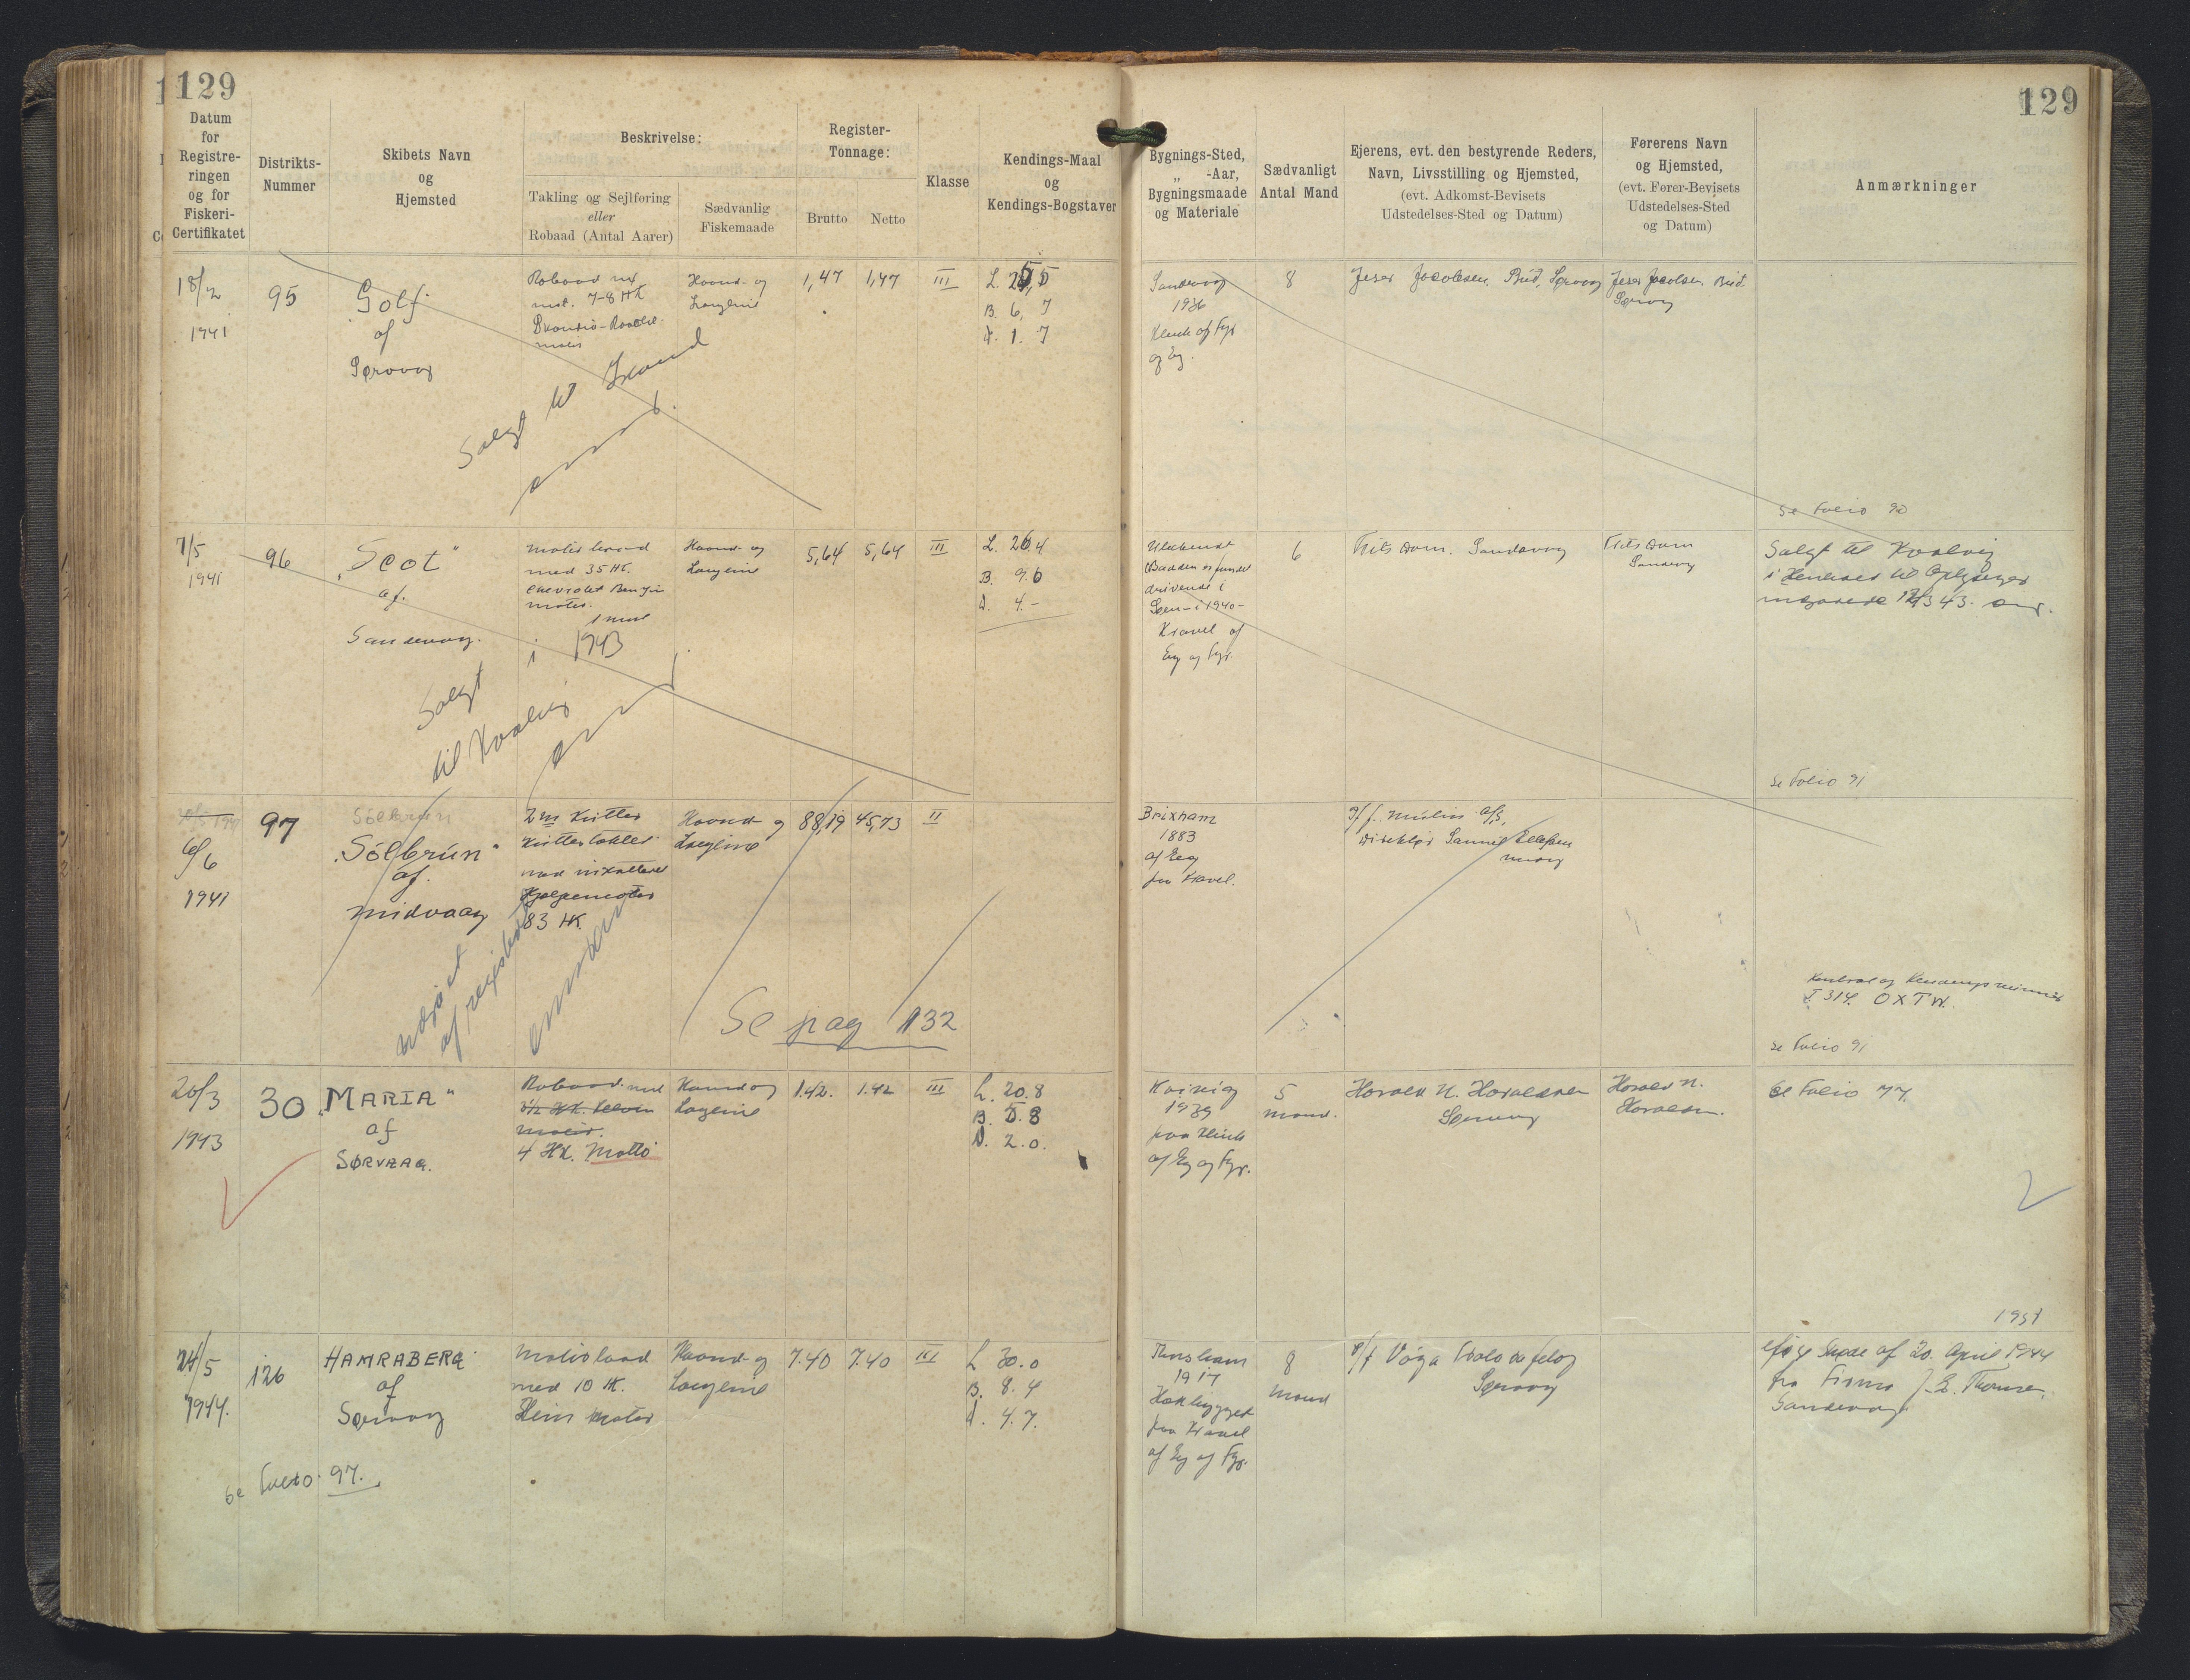 129
Datum
for
Registre-
ringen
og for
Fiskeri-
Certifikatet
Distrikts-
Nummer
Skibets Navn
og
Hjemsted
Beskrivelse:
Takling og Sejlføring
eller
Robaad (Antal Aarer)
Sædvanlig
Fiskemaade
Register-
Tonnage:
Brutto
Netto
Klasse
Kendings-Maal
og
Kendings-Bogstaver
18/2
1941
95
Golf
af
Sørvaag
Robaad med
mot. 7-8 HK
motor
Haand- og
Langline
1,47
1,47
III
B. 6, 7
d. 1. 7
Salgt til
7/5
1941
96
"Scot"
af.
Sandevaag.
Motorbaad
med 35 HK.
Chevrolet Benzin
motor.
Haand- og
Langline
5,64
5,64
III
L. 26.4
B. 9.6
d. 4.-
Salgt i 1943
til Kvalvig
97
6/6
1941
Sólbrún
"Sólbrún"
af.
Midvaag
2 m Kutter
Kuttertaklet
med
Hjælpemotor
83 HK.
Haand- og
Langline
88,19
45,73
II
af register
Se pag 132
20/3
1943
30
"MARIA"
af
SØRVAAG.
Robaad med
3½ HK. Kelvin
motor.
4 HK. Motto
Haand og
Langline
1.42.
1.42
III
L. 20.8
B. 5.8
d. 2.0.
24/5
1944.
126
HAMRABERG
af
Sørvaag
Motorbaad
med 10 HK.
Hein Motor
Haand- og
Langline
7.40
7.40
III
L 30.0
B. 8.4
d. 4.7.
Se Folio 97.
129
Bygnings-Sted,
„ -Aar,
Bygningsmaade
og Materiale
Sædvanligt
Antal Mand
Ejerens, evt. den bestyrende Reders,
Navn, Livsstilling og Hjemsted,
(evt. Adkomst-Bevisets
Udstedelses-Sted og Datum)
Førerens Navn
og Hjemsted,
(evt. Fører-Bevisets
Udstedelses-Sted
og Datum)
Anmærkninger
Sandevaag
1936
Klink af Fyr
og Eg.
8
Jacobsen, Bud, Sørvaag
Jacobsen Bud.
Sørvaag
Se Folio 90
Ubekendt
Baaden er fundet
drivende i
Søen i 1940-
Kravel af
Eg og Fyr.
6
Frits Dam. Sandavaag
Frits Dam
Sandevaag
Salgt til Kvalvig
i Henhold til Oplysninger
Se Folio 91
Brixham
1883
af Eeg
paa Kravel.
Se Folio 91
T 314. OXTW.
1939
paa Klink
af Eg og Fyr.
5
Mand.
Harald N. Haraldsen
Sørvaag
Harald N.
Haraldsen.
Se Folio 77.
1951
Thorshavn
1917
Hækbygget
paa Kravel
af Eg og Fyr.
8
Mand
P/f Vága
Sørvaag
ifølge Skøde af 20. April 1944
fra Firma J. E. Thomsen,
Sandevaag.